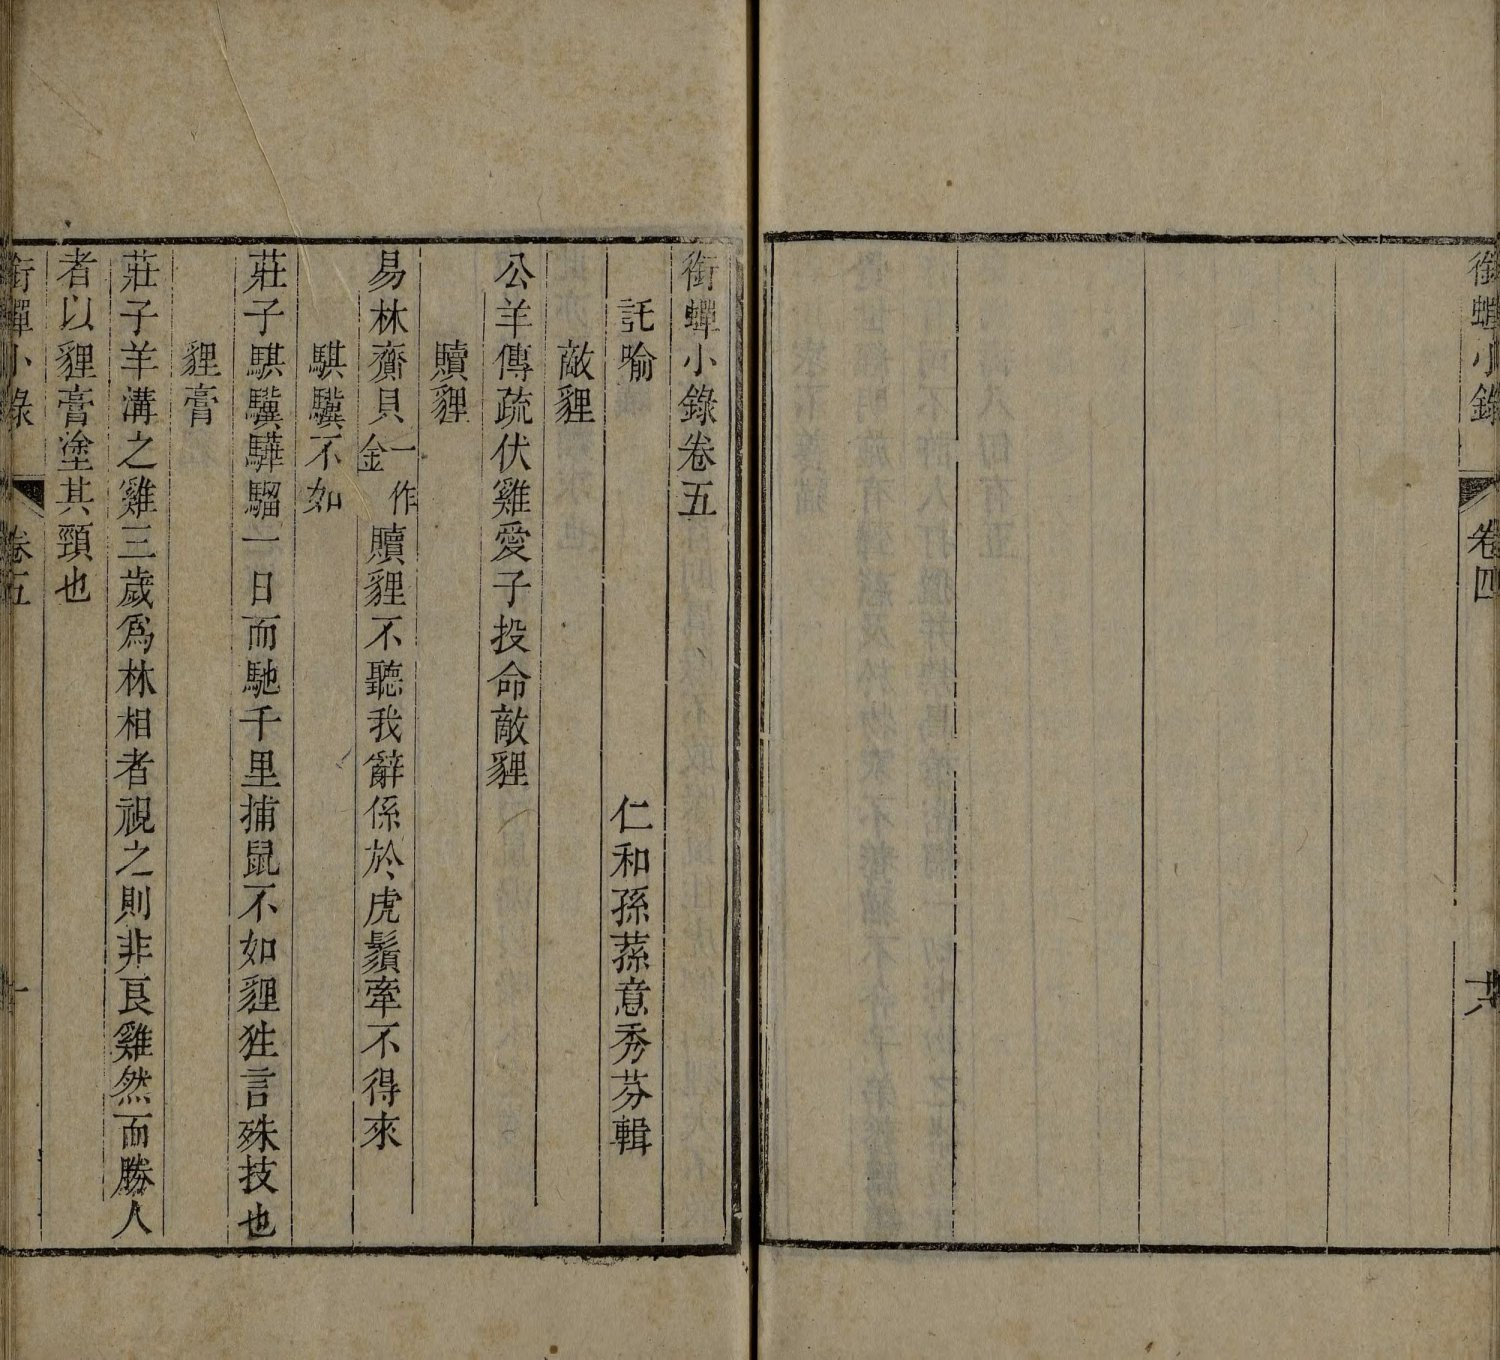 銜蟬小錄
卷四
六
銜蟬小錄卷五
託喻
仁和孫蓀意秀芬輯
敵貍
公羊傳疏伏雞愛子投命敵貍
贖貍
易林齎貝一作金贖貍不聽我辭係於虎鬚牽不得來
騏驥不如
莊子騏驥驊騮一日而馳千里捕鼠不如貍狌言殊技也
貍膏
莊子羊溝之雞三歲爲株相者視之則非良雞然而勝人
者以貍膏塗其頸也
銜蟬小錄
卷五
一